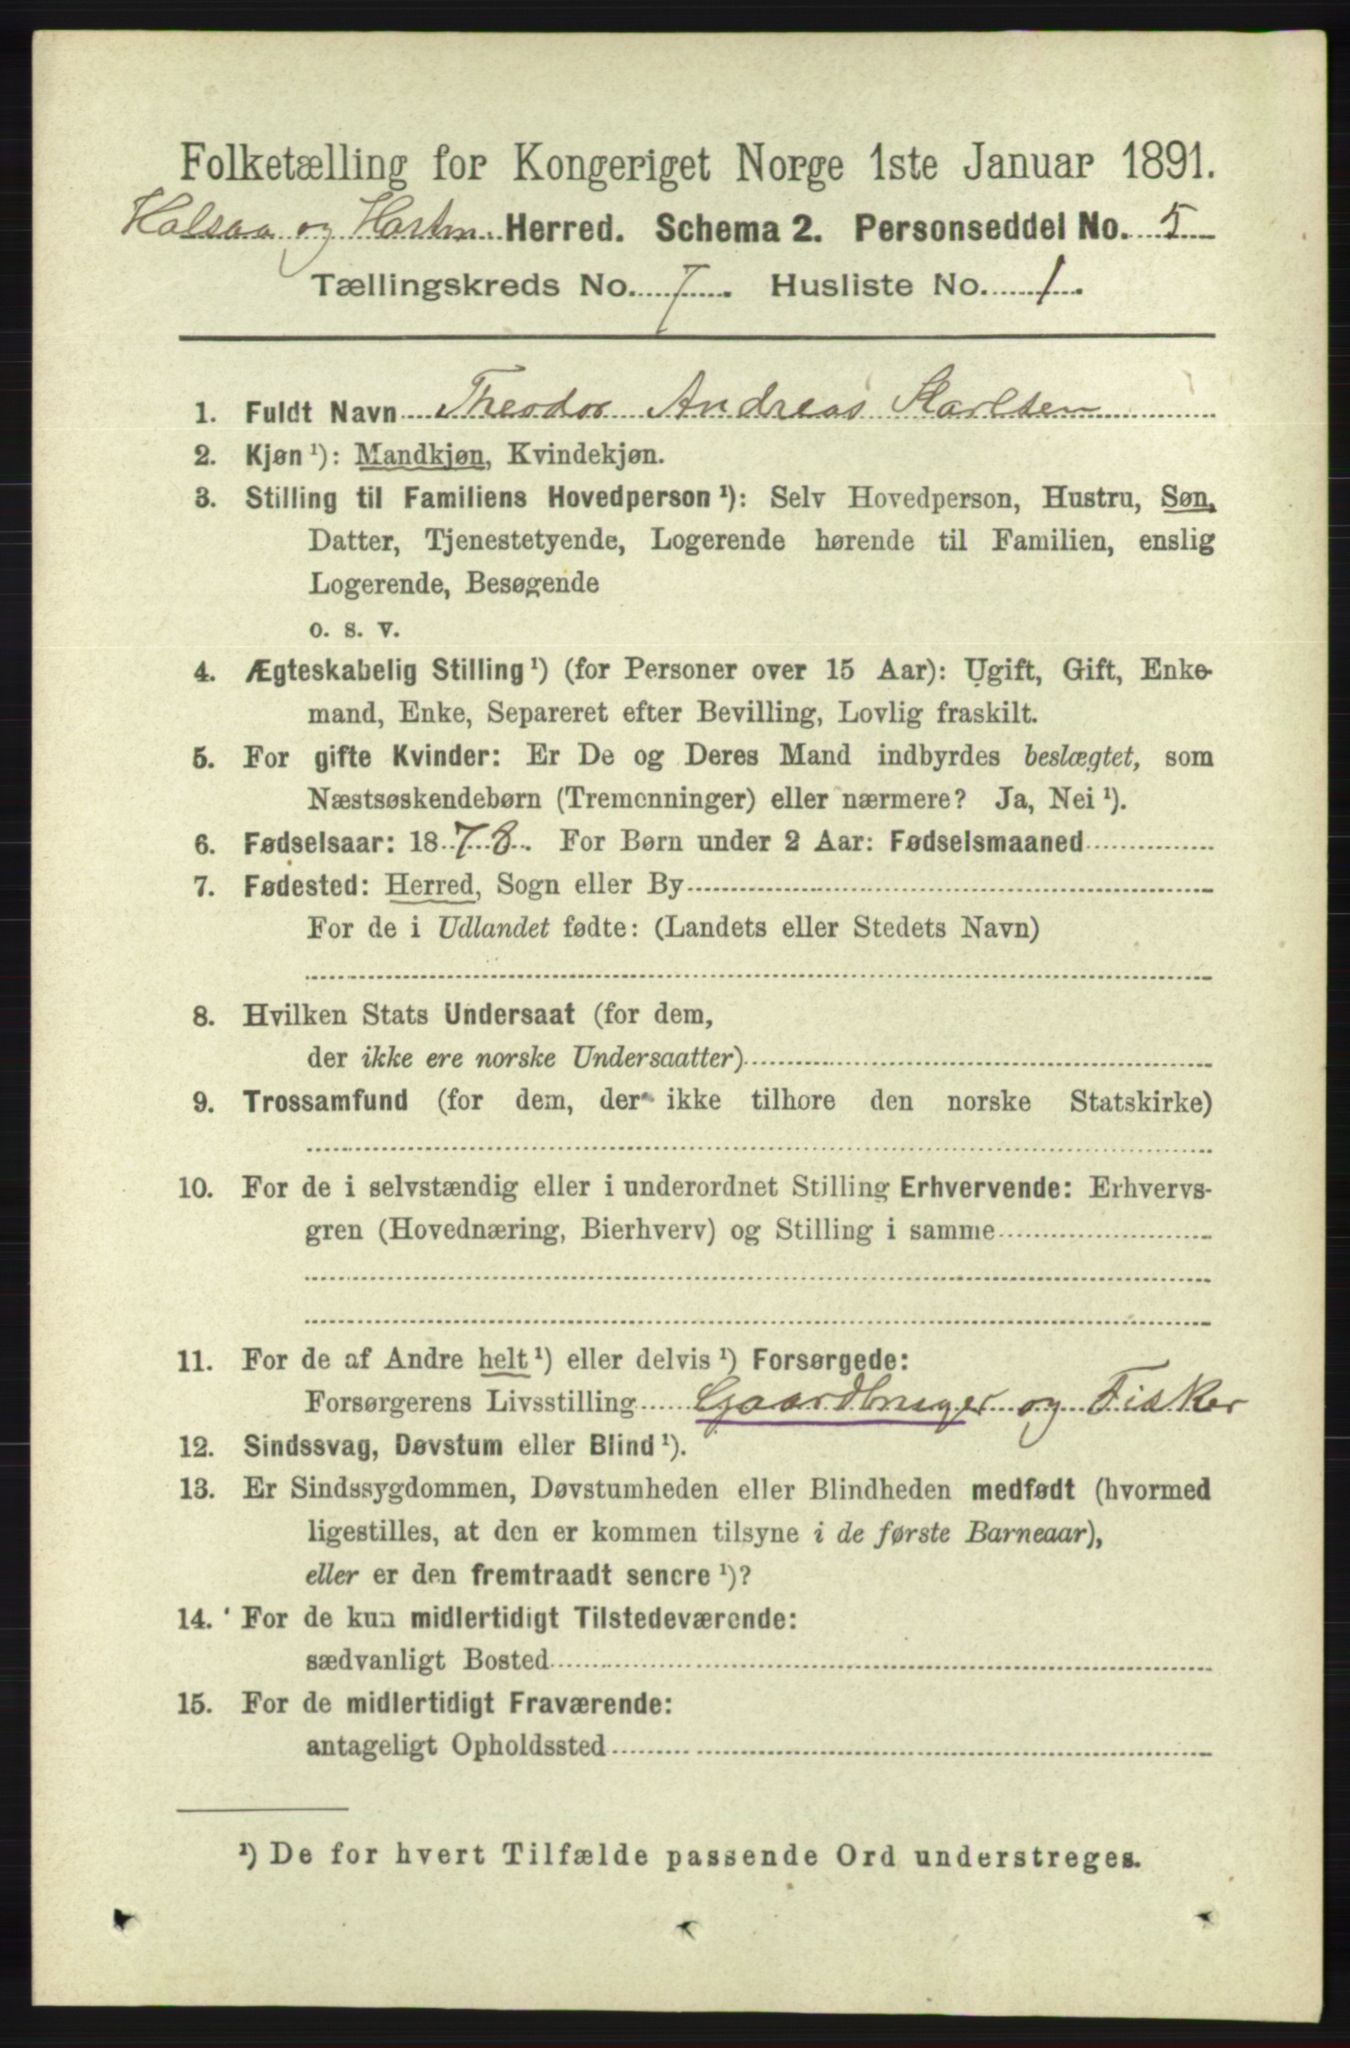 Folketælling for Kongeriget Norge 1ste Januar 1891.
Halsaa og Hartm. Herred. Schema 2. Personseddel No. 5
Tællingskreds No. 7. Husliste No. 1.
1. Fuldt Navn Theodor Andreas Karlsen
2. Kjøn ¹): Mandkjøn, Kvindekjøn.
3. Stilling til Familiens Hovedperson ¹): Selv Hovedperson, Hustru, Søn,
Datter, Tjenestetyende, Logerende hørende til Familien, enslig
Logerende, Besøgende
o. s. v.
4. Ægteskabelig Stilling ¹) (for Personer over 15 Aar): Ugift, Gift, Enke-
mand, Enke, Separeret efter Bevilling, Lovlig fraskilt.
5. For gifte Kvinder: Er De og Deres Mand indbyrdes beslægtet, som
Næstsøskendebørn (Tremenninger) eller nærmere? Ja, Nei ¹).
6. Fødselsaar: 1878. For Børn under 2 Aar: Fødselsmaaned
7. Fødested: Herred, Sogn eller By
For de i Udlandet fødte: (Landets eller Stedets Navn)
8. Hvilken Stats Undersaat (for dem,
der ikke ere norske Undersaatter)
9. Trossamfund (for dem, der ikke tilhore den norske Statskirke)
10. For de i selvstændig eller i underordnet Stilling Erhvervende: Erhvervs-
gren (Hovednæring, Bierhverv) og Stilling i samme
11. For de af Andre helt ¹) eller delvis ¹) Forsørgede:
Forsørgerens Livsstilling Gaardbruger og Fisker
12. Sindssvag, Døvstum eller Blind ¹).
13. Er Sindssygdommen, Døvstumheden eller Blindheden medfødt (hvormed
ligestilles, at den er kommen tilsyne i de første Barneaar),
eller er den fremtraadt senere ¹)?
14. For de kun midlertidigt Tilstedeværende:
sædvanligt Bosted
15. For de midlertidigt Fraværende:
antageligt Opholdssted
¹) De for hvert Tilfælde passende Ord understreges.